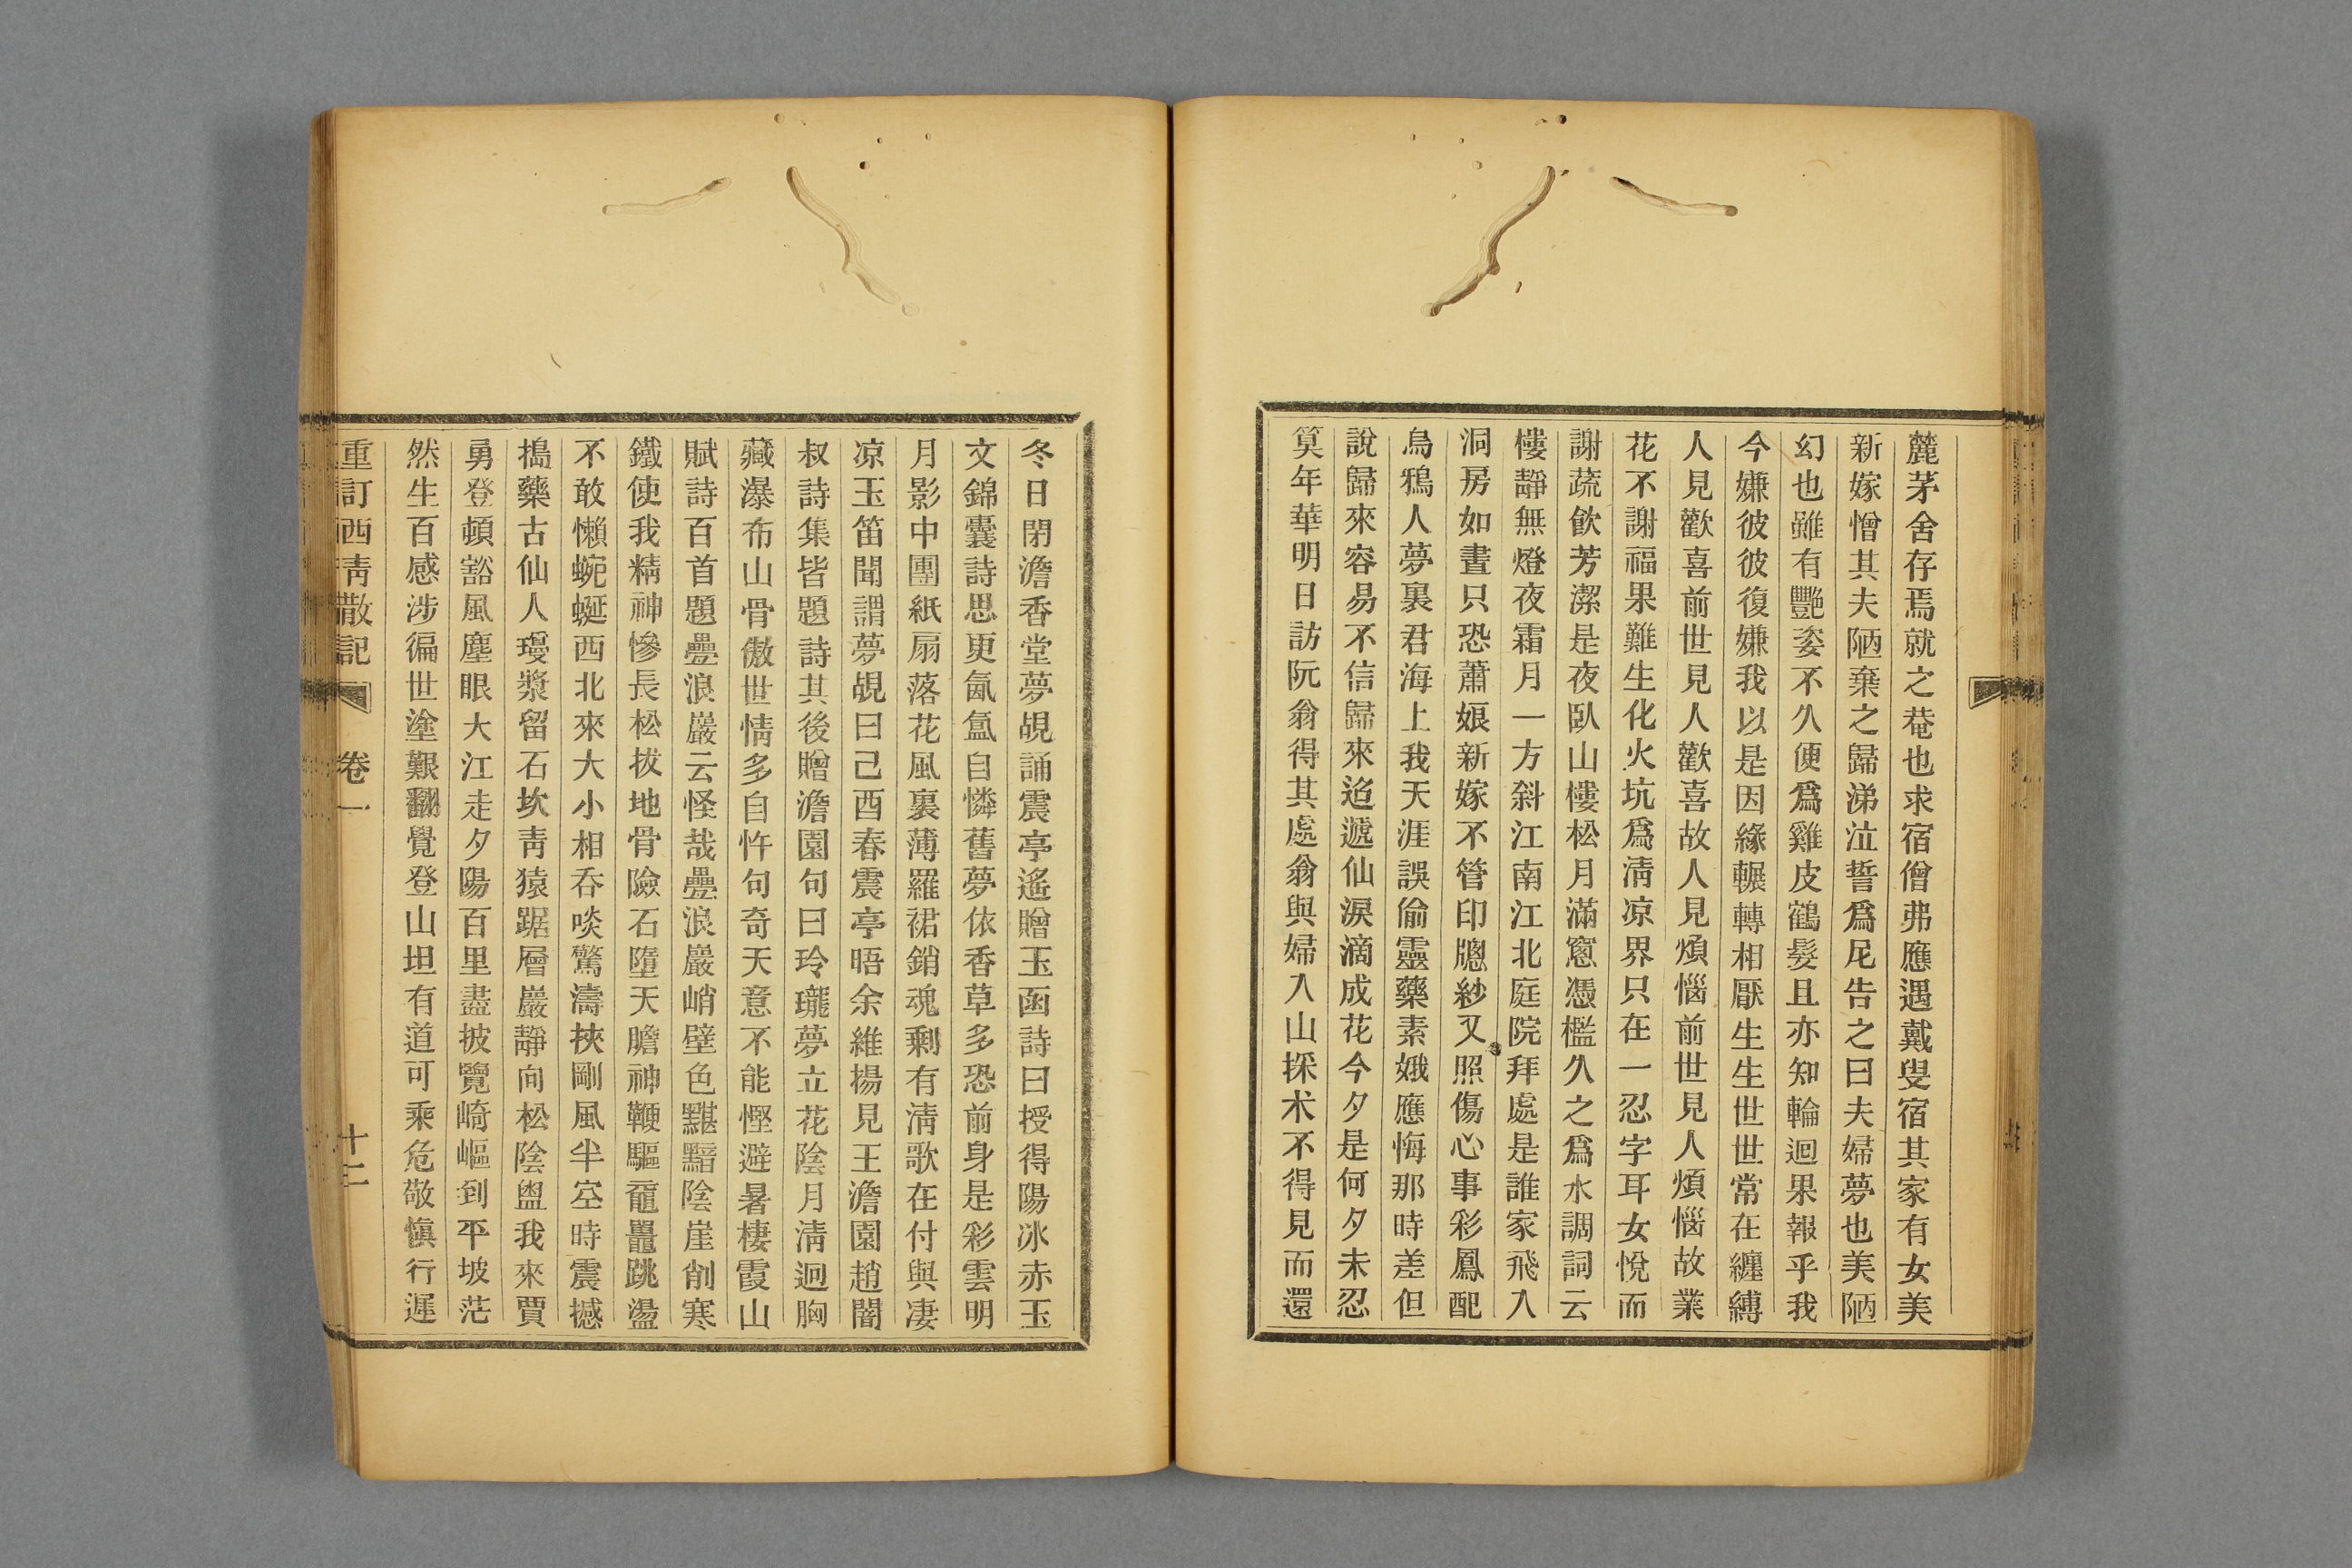 麓茅舍存焉就之菴也求宿僧弗應遇戴叟宿其家有女美
新嫁憎其夫陋棄之歸涕泣誓爲尼告之曰夫婦夢也美陋
幻也雖有豔姿不久便爲雞皮鶴髮且亦知輪迴果報乎我
今嫌彼彼復嫌我以是因緣輾轉相厭生生世世常在纏縛
人見歡喜前世見人歡喜故人見煩惱前世見人煩惱故業
花不謝福果難生化火坑爲淸凉界只在一忍字耳女悅而
謝蔬飮芳潔是夜臥山樓松月滿窻憑檻久之爲水調詞云
樓靜無燈夜霜月一方斜江南江北庭院拜處是誰家飛入
洞房如晝只恐蕭娘新嫁不管印牕紗又照傷心事彩鳳配
烏鴉人夢裏君海上我天涯誤偷靈藥素娥應悔那時差但
說歸來容易不信歸來迢遞仙淚滴成花今夕是何夕未忍
算年華明日訪阮翁得其處翁與婦入山採术不得見而還
冬日閉澹香堂夢覘誦震亭遙贈玉函詩曰授得陽冰赤玉
文錦囊詩思更氤氳自憐舊夢依香草多恐前身是彩雲明
月影中團紙扇落花風裏薄羅裙銷魂剩有淸歌在付與凄
凉玉笛聞謂夢覘曰己酉春震亭晤余維揚見王澹園趙闇
叔詩集皆題詩其後贈澹園句曰玲瓏夢立花陰月淸迴胸
藏瀑布山骨傲世情多自忤句奇天意不能慳避暑棲霞山
賦詩百首題疊浪巖云怪哉疊浪巖峭壁色黮黯陰崖削寒
鐵使我精神慘長松拔地骨險石墮天膽神鞭驅黿鼉跳盪
不敢懶蜿蜒西北來大小相呑啖驚濤挾剛風半空時震撼
搗藥古仙人瓊漿留石坎靑猿踞層巖靜向松陰盥我來賈
勇登頓豁風塵眼大江走夕陽百里盡披覽崎嶇到平坡茫
然生百感涉徧世塗艱翻覺登山坦有道可乘危敬愼行遲
重訂西靑散記　卷一　十二